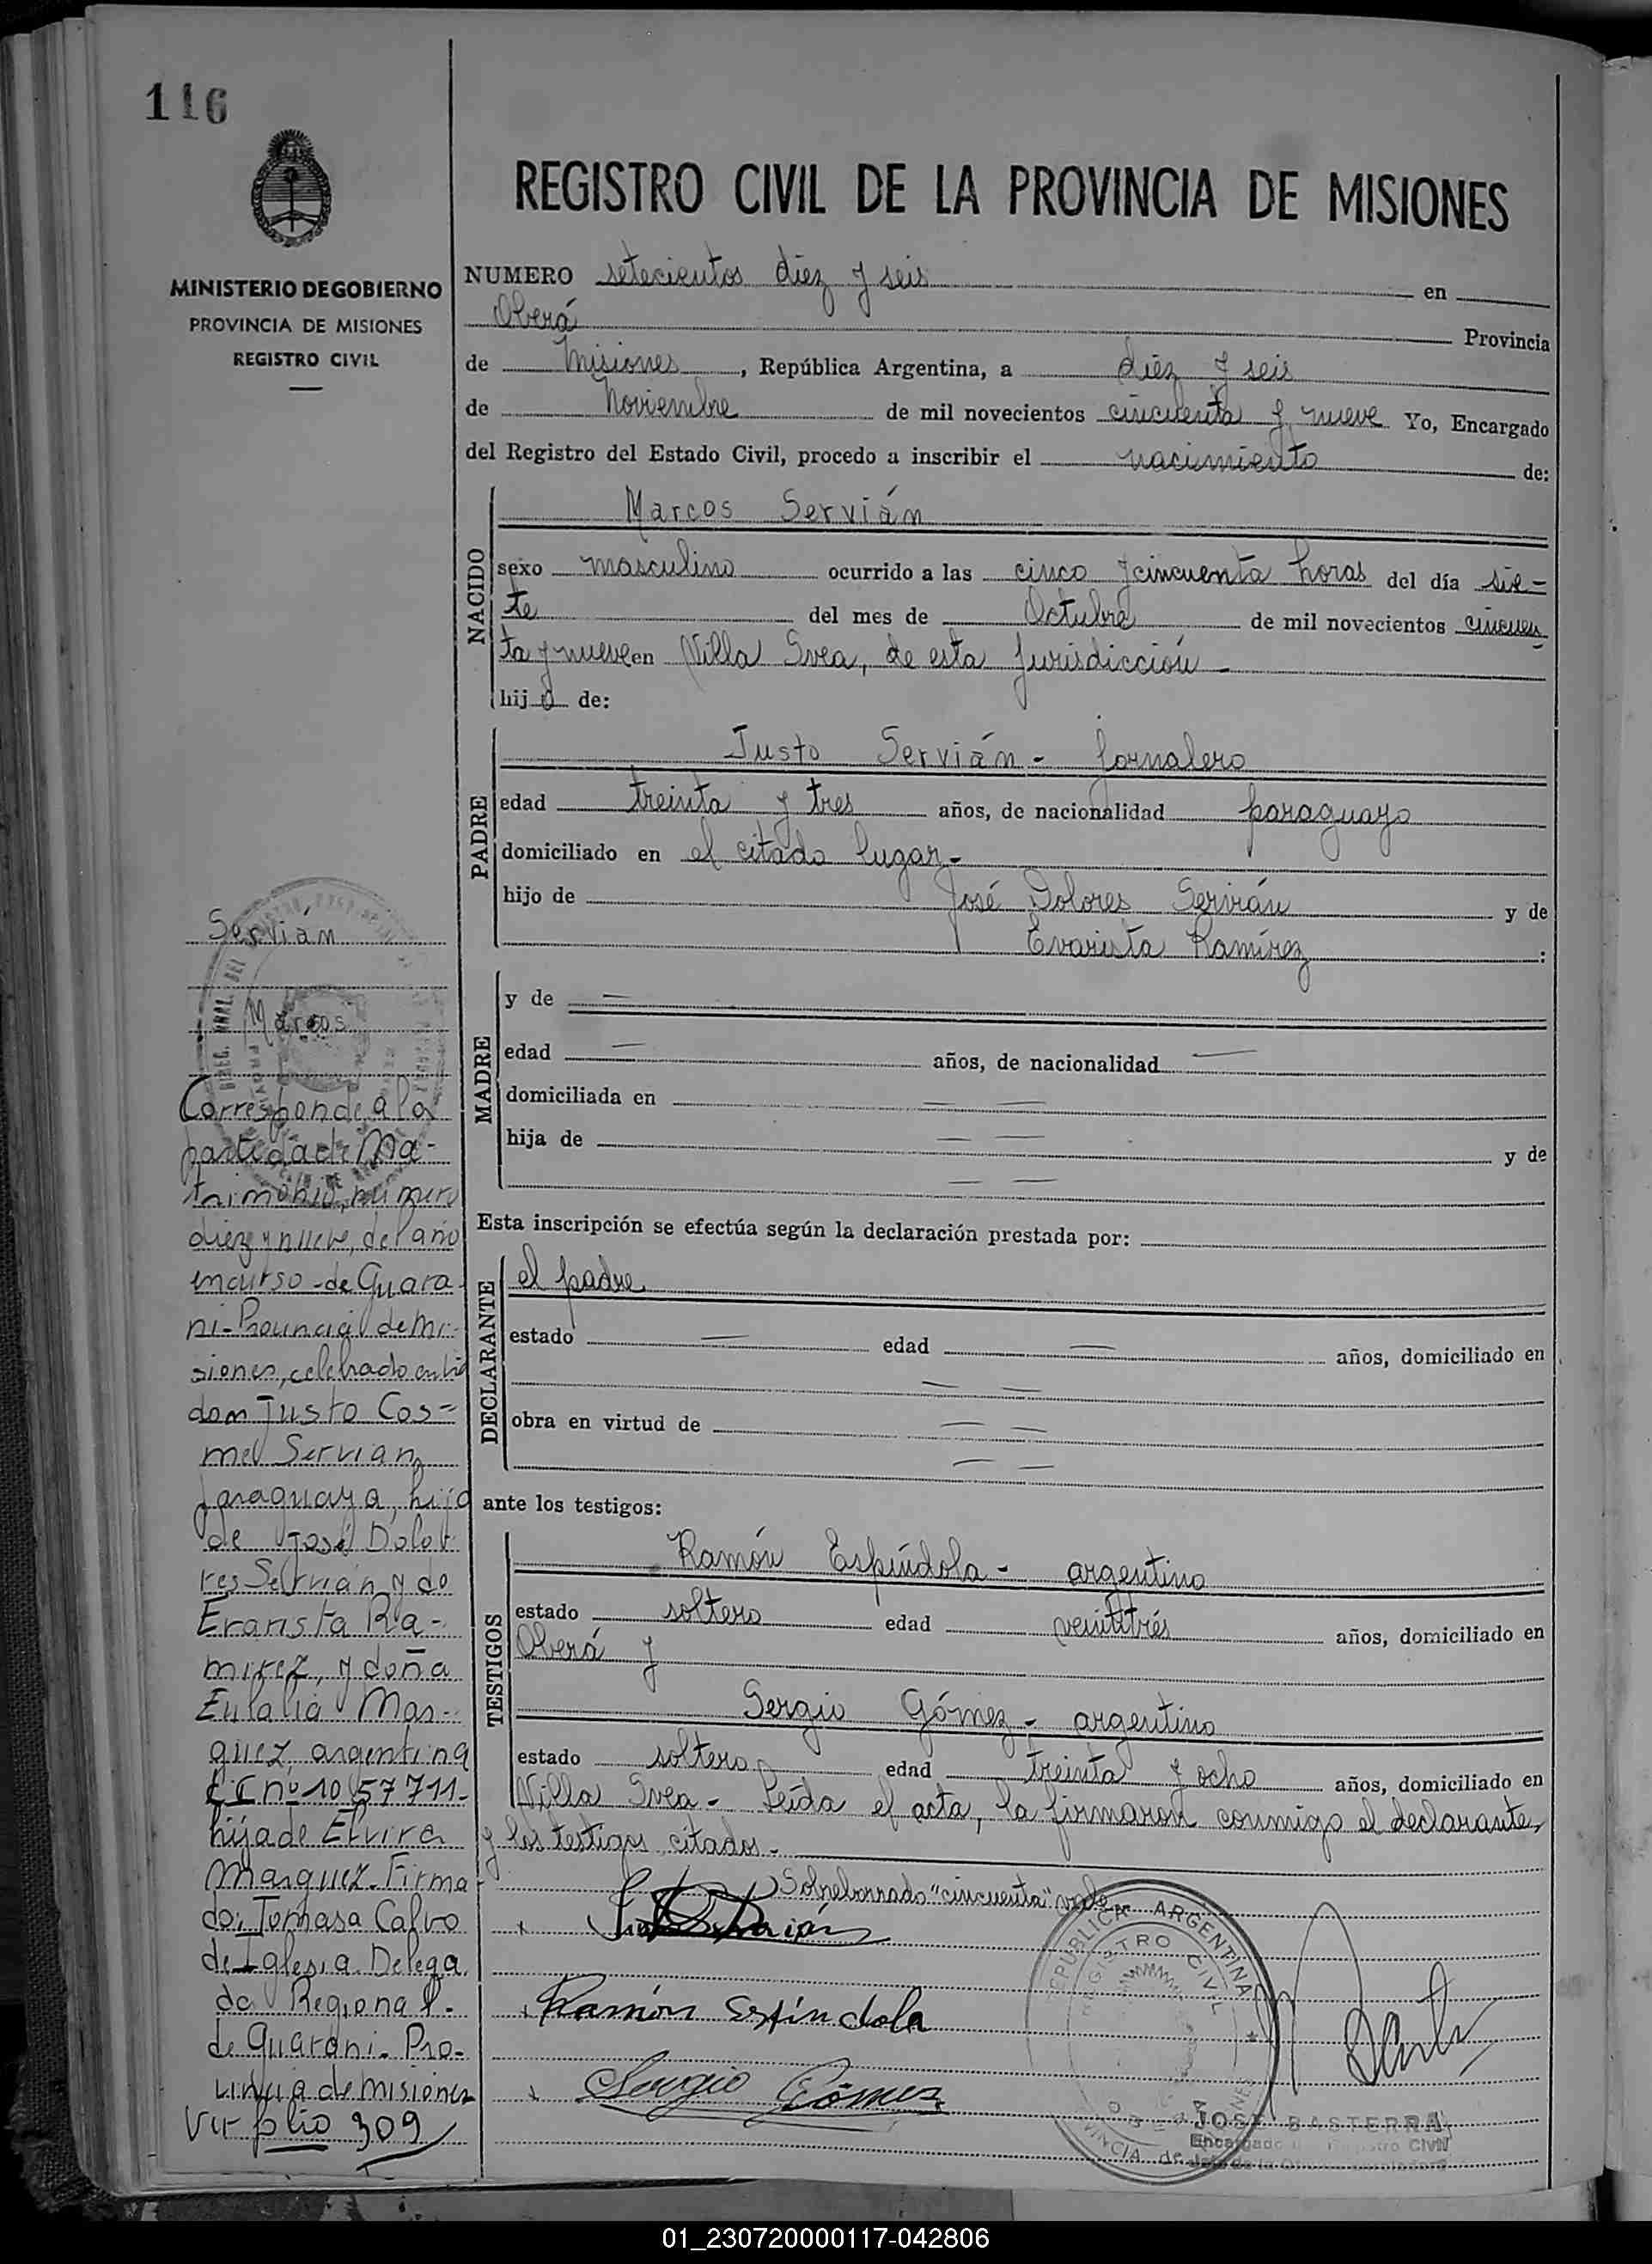 116
MINISTERIO DE GOBIERNO
PROVINCIA DE MISIONES
REGISTRO CIVIL
REGISTRO CIVIL DE LA PROVINCIA DE MISIONES
NUMERO setecientos diez y seis en
Oberá Provincia
de Misiones, República Argentina, a diez y seis
de Noviembre de mil novecientos cincuenta y nueve Yo, Encargado
del Registro del Estado Civil, procedo a inscribir el nacimiento de:
NACIDO
Marcos Servián
sexo masculino ocurrido a las cinco y cincuenta horas del día sie=
te del mes de Octubre de mil novecientos cincuen
ta y nueve en Villa Svea, de esta Jurisdicción -
hijo de:
PADRE
Justo Servián - Jornalero
edad treinta y tres años, de nacionalidad paraguayo
domiciliado en el citado lugar -
hijo de José Dolores Servián y de
Evarista Ramírez :
MADRE
y de —
edad — años, de nacionalidad —
domiciliada en — —
hija de — — y de
— —
Esta inscripción se efectúa según la declaración prestada por:
DECLARANTE
el padre
estado — edad — años, domiciliado en
— —
obra en virtud de — —
— —
ante los testigos:
TESTIGOS
Ramón Espíndola - argentino
estado soltero edad veintitrés años, domiciliado en
Oberá y
Sergio Gómez - argentino
estado soltero edad treinta y ocho años, domiciliado en
Villa Svea - Leída el acta, la firmaron conmigo el declarante,
y los testigos citados -
Sobreborrado "cincuenta" vale
Ramón Espíndola
Sergio Gómez
REPUBLICA ARGENTINA
REGISTRO CIVIL
OBERA
JOSE BASTERRA
Encargado del Registro Civil
Servián
Marcos
Corresponde a la
partida de Ma-
trimonio, numero
diez y nueve, del año
en curso - de Guara-
ni - Provincia de Mi-
siones, celebrado entre
don Justo Cos=
mel Servian
paraguayo, hijo
de José Dolo-
res Servián y de
Evarista Ra-
mirez, y doña
Eulalia Mar-
quez, argentina
C I nº 1057711-
hija de Elvira
Marquez - Firma-
do: Tomasa Calvo
de Iglesia. Delega
da Regional -
de Guarani - Pro-
vincia de misiones
Ver folio 309
01_230720000117-042806